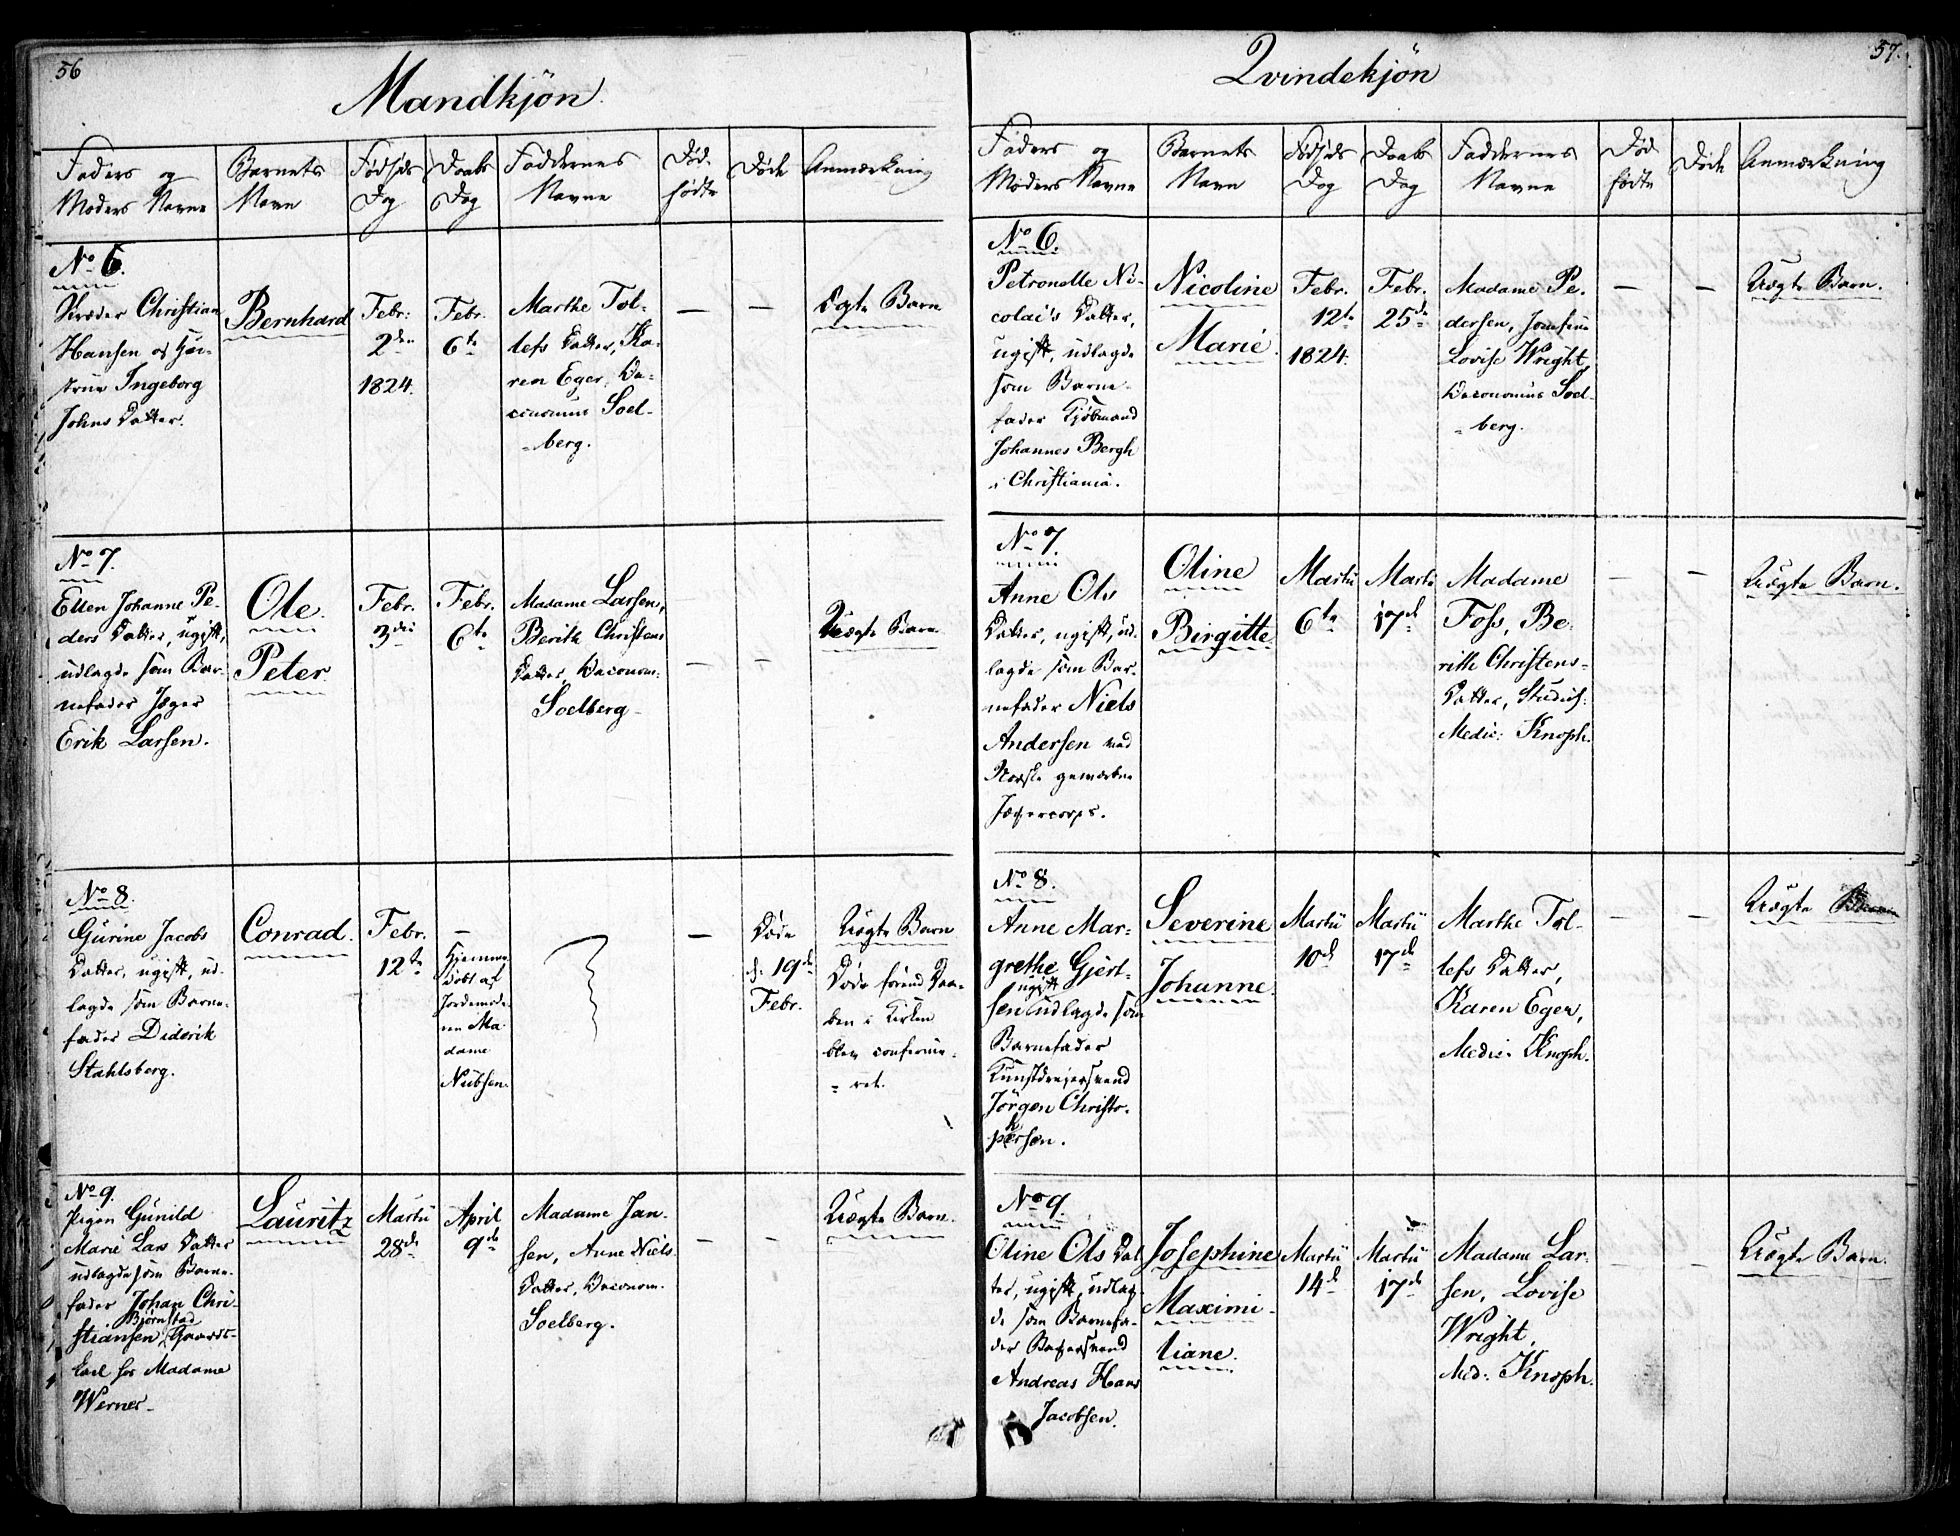 56
Mandkjön.
Faders og
Moders Navne
Barnets
Navn
Fødsels
Dag
Daabs
Dag
Faddernes
Navne
Død-
fødte
Døde
Anmærkning
No 6.
Christian
Hansen og
Ingeborg
Johns Datter.
Bernhard
Febr:
2den
1824.
Febr.
6te
Marthe Tol-
lefs Datter, Ka-
ren Eger,
Soel-
berg.
—
—
Ægte Barn
No 7.
Ellen Johanne Pe-
ders Datter, ugift,
udlagde som Bar-
nefader Jæger
Erik Larsen.
Ole
Peter
Febr.
3die
Febr.
6te
Madame Larsen,
Berith Christens
Datter, Oeconom:
Soelberg
—
—
Uægte Barn.
No 8.
Gurine Jacobs
Datter, ugift, ud-
lagde som Barne-
fader Diderik
Stahlsberg.
Conrad.
Febr.
12te
—
Hjemme-
døbt af
Jordemode-
ren Ma-
dame
Nübsen.
—
Døde
d. 19de
Febr.
Uægte Barn
Døde förend Daa-
ben i Kirken
blev confirme-
ret.
No 9.
Pigen Gunild
Marie Lars Datter
udlagde som Barne-
fader Johan Chri-
Björnstad
stiansen, Gaards-
karl hos Madame
Werner
Lauritz
Martii
28de
April
9de
Madame Jan-
sen, Anne Niels
Datter, Oeconom.
Soelberg.
—
—
Uægte Barn.
57.
Qvindekjön
Faders og
Moders Navne
Barnets
Navn
Fødsels
Dag
Daabs
Dag
Faddernes
Navne
Død
fødte
Døde
Anmærkning
No 6.
Petronelle Ni-
colai's Datter,
ugift, udlagde
som Barne-
fader Kjøbmand
Johannes Bergh
i Christiania.
Nicoline
Marie.
Febr.
12te
1824.
Febr.
25de
Madame Pe-
dersen, Jomfrue
Lovise Wright,
Oeconomus Soel-
berg.
—
—
Uægte Barn.
No 7.
Anne Ols
Datter, ugift, ud-
lagde som Bar-
nefader Niels
Andersen ved
Norske geworbne
Jægercorps.
Oline
Birgitte.
Martii
6te
Martii
17de
Madame
Foss, Be-
rith Christens-
Datter, Studios:
Medic: Knoph.
—
—
Uægte Barn.
No 8.
Anne Mar-
grethe Gjert-
ugift
sen udlagde som
Barnefader
Kunstdrejersvend
Jörgen Christo-
phersen.
Severine
Johanne.
Martii
10de
Martii
17de
Marthe Tol-
lefs Datter,
Karen Eger,
Medic. Knoph.
—
—
Uægte Barn
No 9.
Oline Ols Dat-
ter, ugift, udlag-
de som Barnefa-
der Bagersvend
Andreas Hans
Jacobsen.
Josephine
Maximi-
liane.
Martii
14de
Martii
17de
Madame Lar-
sen, Lovise
Wright,
Med: Knoph.
—
—
Uægte Barn.